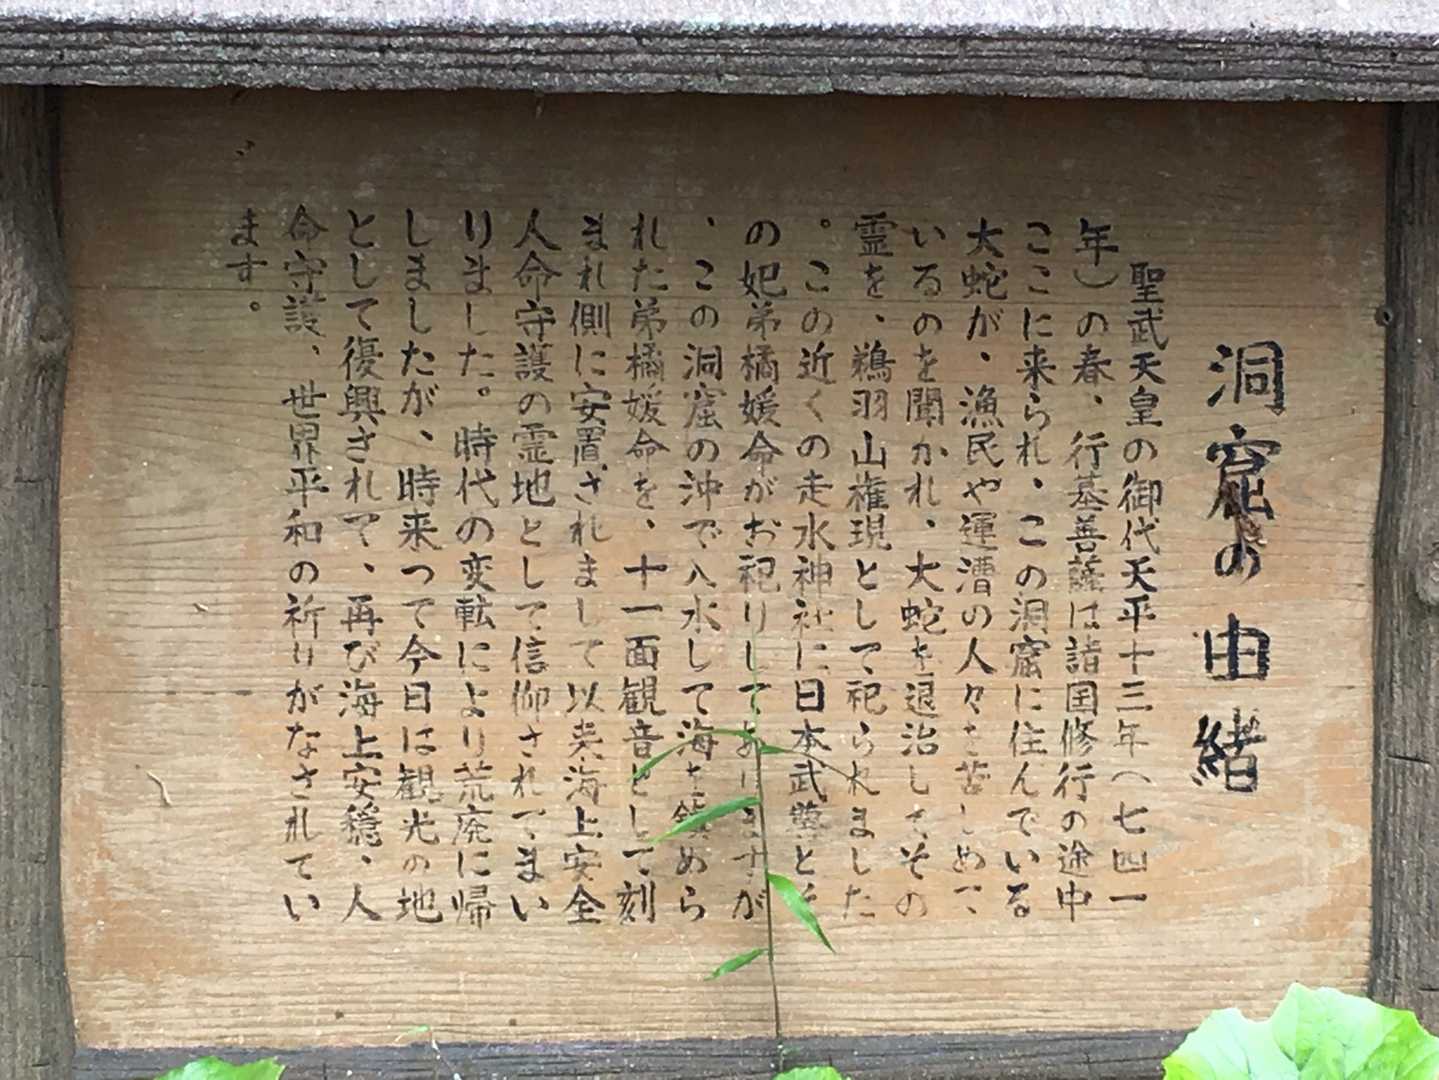 洞窟の由緒
聖武天皇の御代天平十三年（七四一
年）の春、行基善薩は諸国修行の途中
ここに来られ、この洞窟に住んでいる
大蛇が、漁民や運漕の人々を苦しめて、
いるのを聞かれ、大蛇を退治しその
霊を、鵜羽山権現として祀られました
。この近くの走水神社に日本武尊とそ
の妃弟橘媛命がお祀りしてありますが
、この洞窟の沖で入水して海を鎮めら
れた弟橘媛命を、十一面観音として刻
まれ側に安置されまして以来海上安全
人命守護の霊地として信仰されてまい
りました。時代の変転により荒廃に帰
しましたが、時来つて今日は観光の地
として復興されて、再び海上安穏、人
命守護、世界平和の祈りがなされてい
ます。